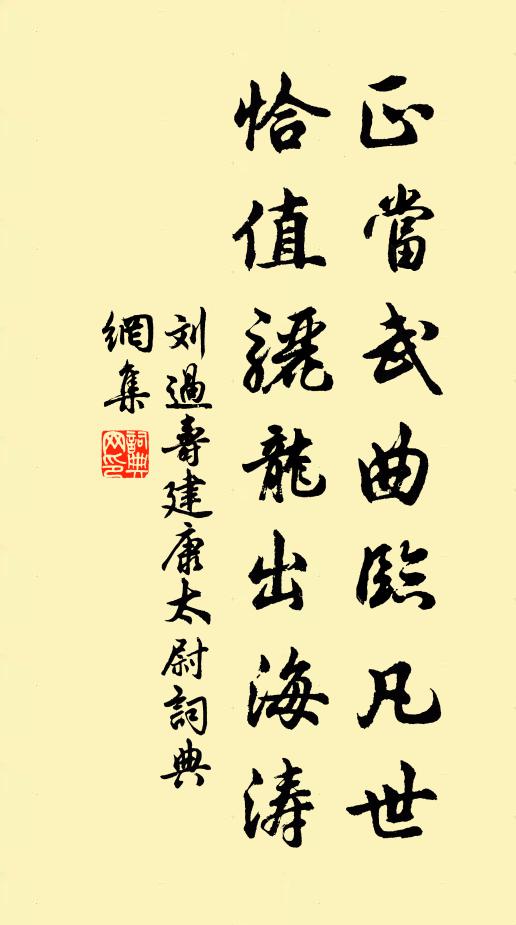 正當武曲臨凡世
恰值驪龍出海濤
刘過壽建康太尉詞典
網集
詞典网印